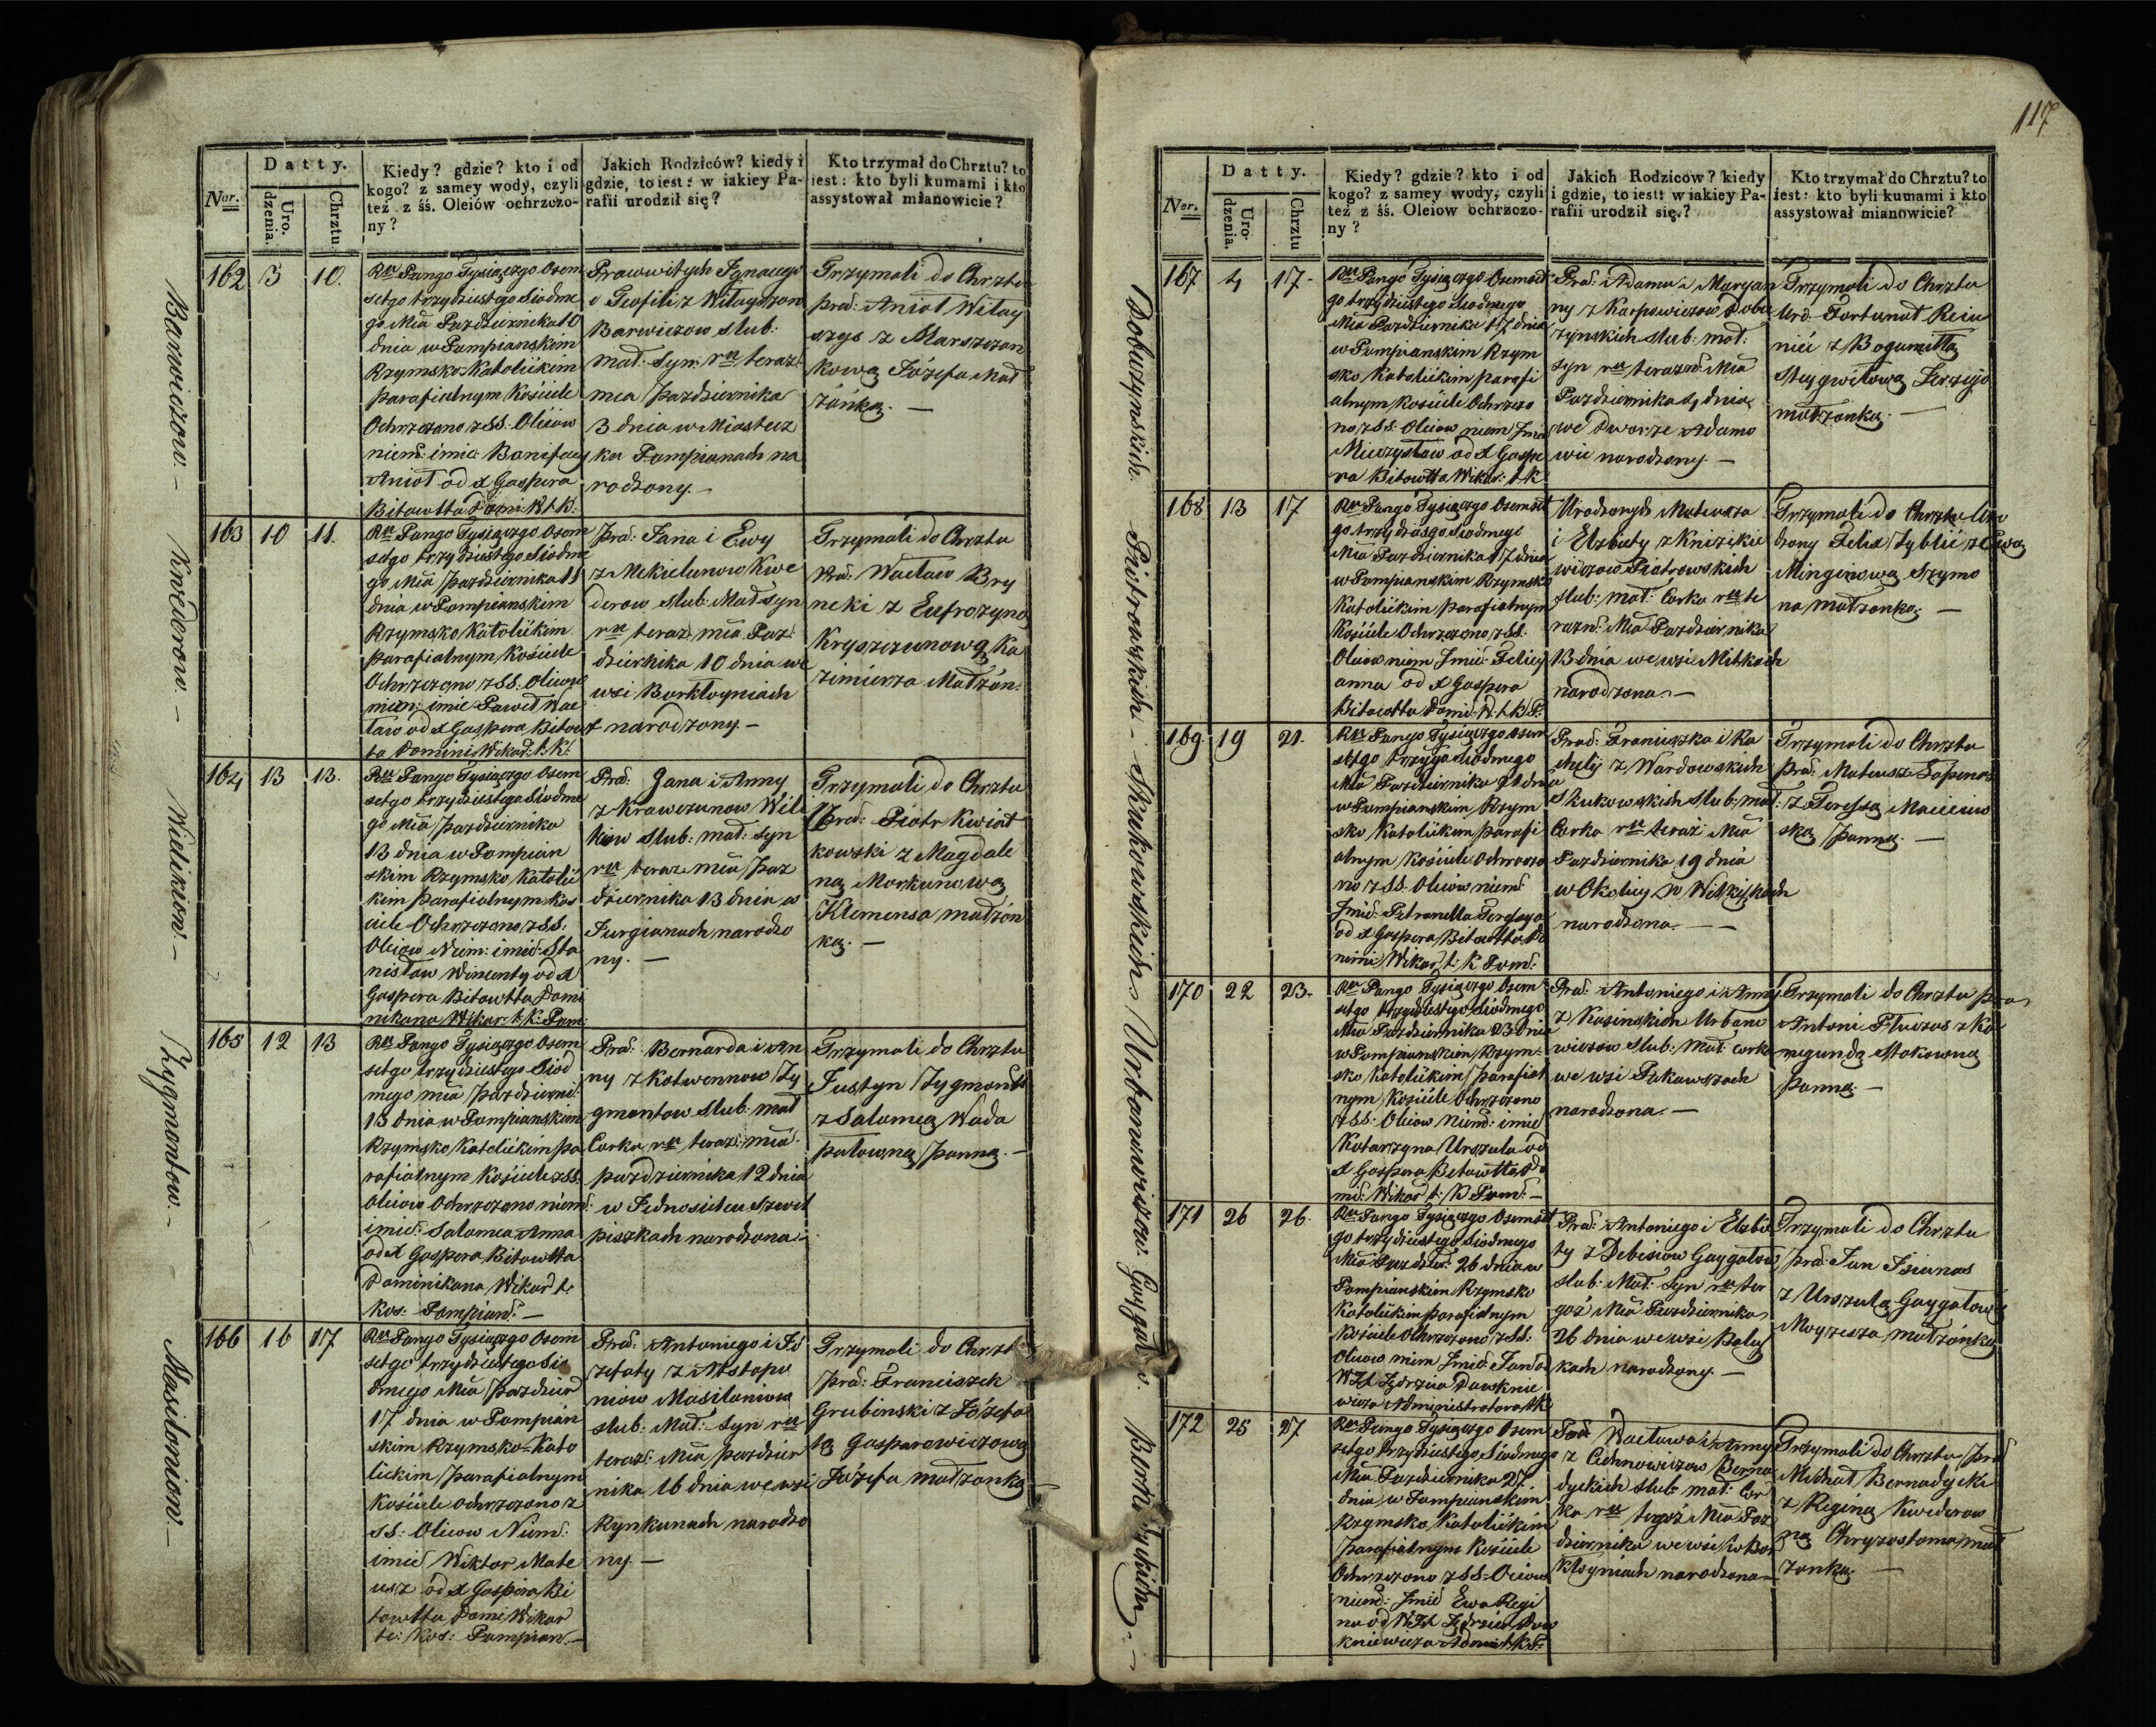 Datty.
Ner.
Uro.
dzenia.
Chrztu
Kiedy? gdzie? kto i od
kogo? z samey wody, czyli
też z śś. Oleiów ochrzczo-
ny?
Jakich Rodziców? kiedy i
gdzie, to iest: w iakiey Pa-
rafii urodził się?
Kto trzymał do Chrztu? to
iest: kto byli kumami i kto
assystował mianowicie?
Barwiczow.
162 3 10.
Rku Pango Tysiączgo Osem
setgo trzydziestego Siodme
go Mia Pazdziernika 10
dnia w Pompianskim
Rzymsko-Katolickim
parafialnym Kościele
Ochrzczono z SS. Oliiów
niem: imie: Bonifacy
Anioł od X Gaspera
Bitowtta Domi: W.t.K:
Prawwitych Ignacego
i Teofili z Witayszow
Barwiczow slub:
mał: Syn: rku teraz:
mca pazdziernika
3 dnia w Miastecz
ku Pompianach na
rodzony. -
Trzymali do Chrztu
prac: Anioł Witay
szys z Marszczon
kową Józefa Mał
żonką. -
Kwederow. -
163 10 11.
Rku Pango Tysiączgo Osem
setgo trzydziestego Siodme
go Mia pazdziernika 11
dnia w Pompianskim
Rzymsko Katolickim
parafialnym Kościele
Ochrzczono z SS. Oliow
niem: imie Paweł Wac
ław od X Gaspera Bitowt
ta Domini Wikar: t. K:
Prac: Jana i Ewy
z Mekielunow Kwe
derow Slub. Mał Syn
rku teraz: mia Paz:
dziernika 10 dnia we
wsi Barkłoyniach
narodzony. -
Trzymali do Chrztu
Prac: Wacław Bry
necki z Eufrozyną
Kryszczunową Ka
zimierza Małżon:
Wielikiow. -
164 13 13.
Rku Pango Tysiączgo Osem
setgo trzydziestego Siodme
go Mia pazdziernika
13 dnia w Pompian
skim Rzymsko Katolic
kim Parafialnym Kos
ciele Ochrzczono z SS:
Oliow Niem: imie: Sta
nisław Wincenty od X
Gaspera Bitowtta Domi
nikana Wikar: t. K: Pom:
Prac: Jana i Anny
z Krawczunow Wiel
kiow Slub: mał: Syn
rku teraz mia Paz
dziernika 13 dnia w
Jurgianach narodzo
ny. -
Trzymali do Chrztu
Prac: Piotr Kwiat
kowski z Magdale
ną Morkunową
Klemensa małżon
ką. -
Zygmontow. -
165 12 13
Rku Pango Tysiączgo Osem
setgo trzydziestego Siod
mego mia pazdzierni:
13 dnia w Pompianskim
Rzymsko Katolickim pa
rafialnym Kościele z SS:
Oliiow Ochrzczono niem:
imie: Salomea Anna
od X Gaspera Bitowtta
Dominikana Wikar t.
Kos: Pompian: -
Prac: Bernarda i An
ny z Kotwennow Zy
gmontow Slub: mał
Corka rku teraz: mia
pazdziernika 12 dnia
w Jednosielcu Szwet
piszkach narodzona.
Trzymali do Chrztu
Justyn Zygmontt
z Salomeą Wada
pałowną panną. -
Masiloniow. -
166 16 17
Rku Pango Tysiączgo Osem
setgo trzydziestego Sio
dmego Mia pazdzier
17 dnia w Pompian
skim Rzymsko-Kato
lickim parafialnym
Kościele ochrzczono z
SS: Oliow Niem:
imie Wiktor Mate
usz od X Gaspera Bi
towtta Domi Wikar
te: Kos: Pompian. -
Prac: Antoniego i Jó
zefaty z Astapo
niow Masiloniow
slub: Mał: Syn rku
teraz: Mia pazdzier
nika 16 dnia we wsi
Rynkunach narodzo
ny. -
Trzymali do Chrztu
prac: Franciszek
Grubinski z Józefa
tą Gasparowiczową
Józefa małżonką
117
Datty.
Ner.
Uro-
dzenia.
Chrztu
Kiedy? gdzie? kto i od
kogo? z samey wody, czyli
też z śś. Oleiow ochrzczo-
ny?
Jakich Rodzicow? kiedy
i gdzie, to iest: w iakiey Pa-
rafii urodził się?
Kto trzymał do Chrztu? to
iest: kto byli kumami i kto
assystował mianowicie?
Dobużynskich.
167 4 17.
Rku Pango Tysiączgo Osemset
go trzydziestego Siodmego
Mia Pazdziernika 17 dnia
w Pompianskim Rzym
sko Katolickim parafi
alnym Kościele Ochrzczo
no z SS. Oliow niem Imie
Mieczysław od X Gaspe
ra Bitowtta Wikar: t. K
Prac: Adama i Maryan
ny z Karpowiczow Dobu
zynskich slub: mał:
Syn rku terazn: Mia
Pazdziernika 4 dnia
we dworze Adamo
wie narodzony. -
Trzymali do Chrztu
Urd: Fortunat Rein
nici z Bogumiłłą
Stuygwiłową Jerzego
małżonką. -
Piotrowskich -
168 13 17
Rku Pango Tysiączgo Osemset
go trzydziesgo Siodmego
Mia Pazdziernika 17 dnia
w Pompianskim Rzymsko
Katolickim parafialnym
Kościele Ochrzczono z SS.
Oliow niem Imie: Felicy
anna od X Gaspera
Bitowtta Domi: W. t. K P.
Urodzonych Mateusza
i Elzbiety z Knizikie
wiczow Piotrowskich
slub: mał: Corka rku te
razn: Mia Pazdziernika
13 dnia we wsi Mitkach
narodzona. -
Trzymali do Chrztu Uro
dzony Felix Zyblić z Ewą
Minginową Szymo
na małżonką. -
Skukowskich
169 19 21.
Rku Pango Tysiączgo Osem
setgo trzydza Siodmego
Mia Pazdziernika 21 dnia
w Pompianskim Rzym
sko Katolickim parafi
alnym Kościele Ochrzczo
no z SS. Oliów niem:
Imie: Petronella Teressa
od X Gaspera Bitowtta Do
mini Wikar t: K Pom:
Prac: Franciszka i Ra
cheli z Wardowskich
Skukowskich Slub: mał:
Corka rku teraz: Mia
Pazdziernika 19 dnia
w Okolicy w Wilkiszkach
narodzona. - -
Trzymali do Chrztu
prac: Mateusz Łopinos
z Teressą Macieius
ką panną. -
Urbanowiczow.
170 22 23.
Rku Pango Tysiączgo Osem
setgo trzydziestego Siodmego
Mia Pazdziernika 23 dnia
w Pompianskim Rzym-
sko Katolickim parafial
nym Kościele Ochrzczono
z SS: Oliow Niem: imie
Katarzyna Urszula od
X Gaspera Bitowtta Do
mi: Wikar t: K Pom: -
Prac: Antoniego i Anny
z Kasinskich Urbano
wiczow Slub: Mał: Corka
we wsi Pukawszach
narodzona. -
Trzymali do Chrztu prac
Antoni Pluczos z Ku
negundą Mokowną
panną. -
Gaygałow.
171 26 26.
Rku Pango Tysiączgo Osemset
go trzydziestego Siodmego
Mia Pazdzier: 26 dnia w
Pompianskim Rzymsko
Katolickim parafialnym
Kościele Ochrzczono z SS:
Oliow niem Imie: Jan od
WJX Jędrzeia Dowknie
wicza Administratora t K
Prac: Antoniego i Elzbie
ty z Debisiow Gaygałow
slub: Mał: Syn rku ter
goż Mia Pazdziernika
26 dnia we wsi Baluś
kach narodzony. -
Trzymali do Chrztu
prac: Jan Isiunas
z Urszulą Gaygałow
Moyzesza małżonką
Bernadyckich. -
172 25 27
Rku Pango Tysiączgo Osem
setgo trzydziestego Siodmego
Mia Pazdziernika 27.
dnia w Pompianskim
Rzymsko Katolickim
parafialnym Kościele
Ochrzczono z SS. Oliow
niem: Imie Ewa Regi
na od WJX Jędrzeia Dow
kniewicza Admit. K.P.
Prac Wacława i Anny
z Cichnowiczow Berna
dyckich slub: mał: Cor
ka rku tegoż Mia Paz
dziernika we wsi w Bar
kłoyniach narodzona
Trzymali do Chrztu Prac
Michał Bernadycki
z Reginą Kwederow
ną Chryzostoma mał
żonką. -